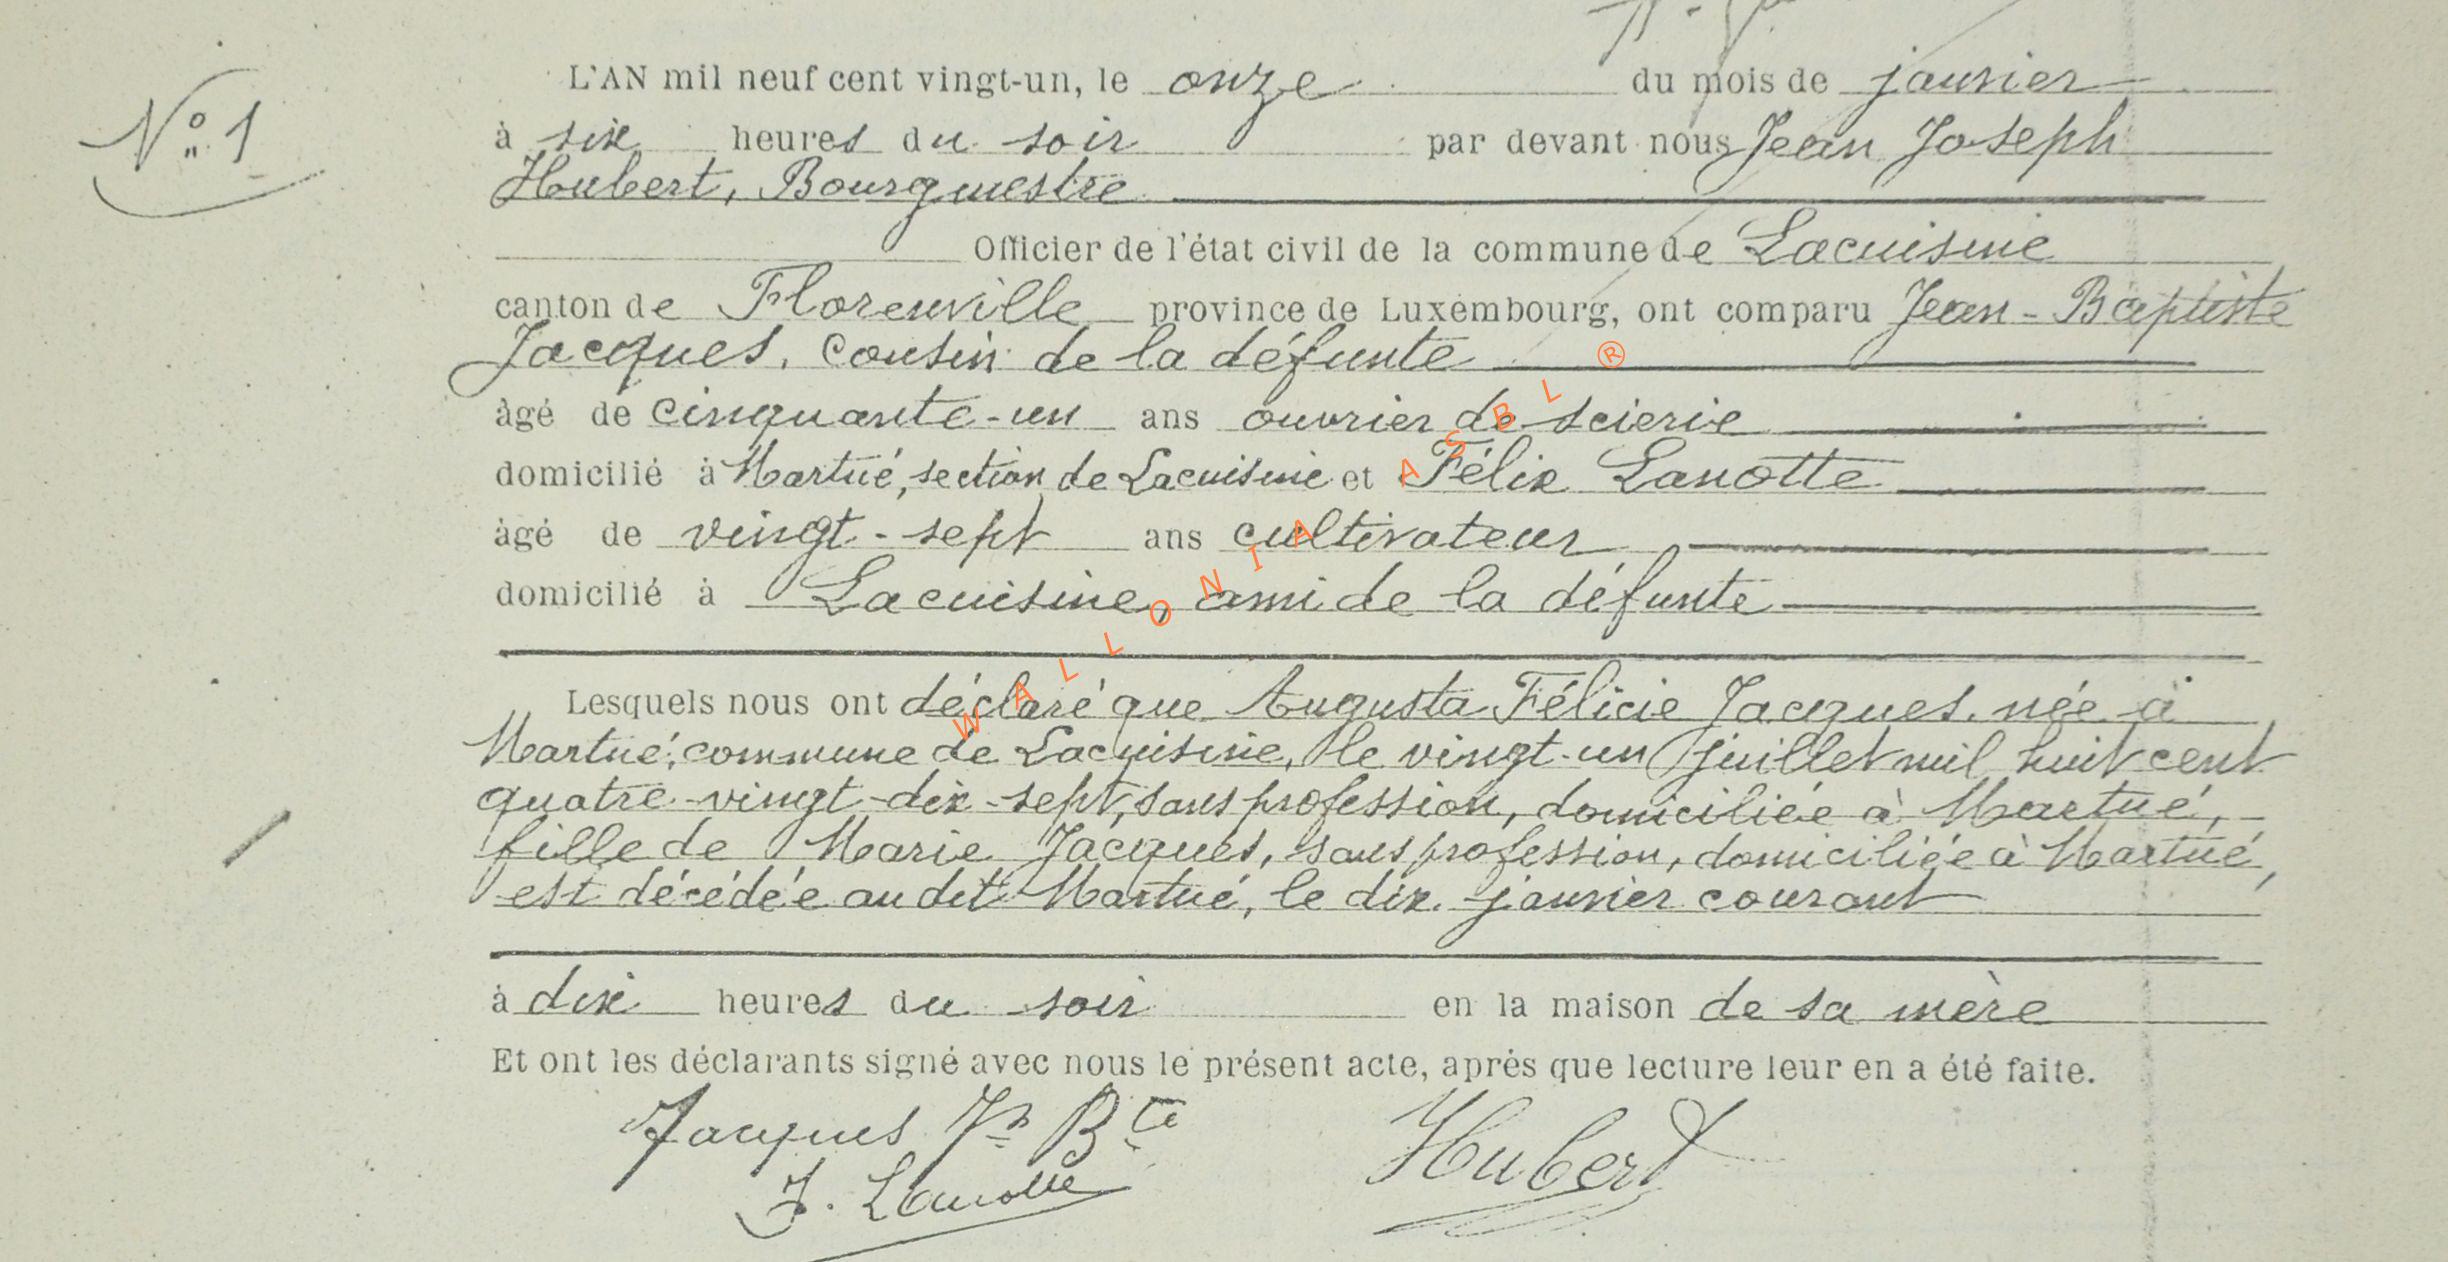 L'AN mil neuf cent vingt-un, le onze du mois de janvier
N° 1
à six heures du soir par devant nous Jean Joseph
Hubert, Bourgmestre
Officier de l'état civil de la commune de Lacuisine
canton de Florenville province de Luxembourg, ont comparu Jean-Baptiste
Jacques, cousin de la défunte
âgé de cinquante-un ans ouvrier de scierie
domicilié à Martué, section de Lacuisine et Félix Lanotte
âgé de vingt-sept ans cultivateur
domicilié à Lacuisine, ami de la défunte
Lesquels nous ont déclaré que Augusta Félicie Jacques, née à
Martué, commune de Lacuisine, le vingt-un juillet mil huit cent
quatre-vingt-dix-sept, sans profession, domiciliée à Martué,
fille de Marie Jacques, sans profession, domiciliée à Martué,
est décédée au dit Martué, le dix janvier courant
à dix heures du soir en la maison de sa mère
Et ont les déclarants signé avec nous le présent acte, après que lecture leur en a été faite.
Jacques Jn Bte
Hubert
F. Lanotte
WALLONIA ASBL ®